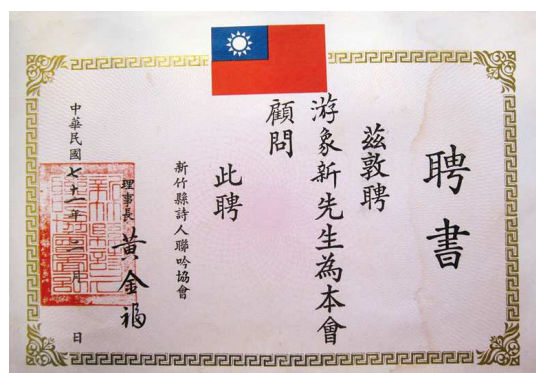 聘書
茲敦聘
游象新先生為本會
顧問
此聘
新竹縣詩人聯吟協會
理事長 黃金福
中華民國七十一年二月 日